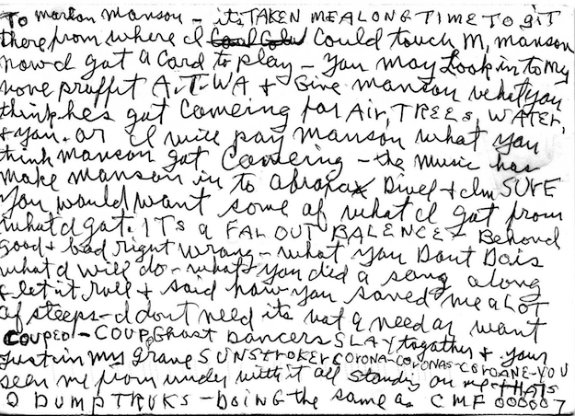 To marlon manson - its TAKEN ME A LONG TIME TO git
there from where I could touch M, manson
now I got a Card to play - You may Look in to My
none proffit A.T.WA & Give manson whet you
think hes got Comeing for Air, TREES, WATER,
& you. or I will pay manson what you
think manson got Comeing - the music has
make manson in to abrapax Divel & Im SURE
you would want some of what I got from
what I got. ITs a FAR OUT BALENCE & Behond
good & bad right wrong - what you Dont Do is
what I will do - what you did a song along
& let it roll & said how you saved me a Lot
of steeps - I dont need it its not a need or want
COUPED - COUP, Ghost Dancers SLAY together & your
just in my grave SUNSTROKER CORONA-CORONAS-COROANE-YOU
seen me from under with it all standing on me THATS
2 DUMP TRUKS - DOING THE SAME as CMF 000007